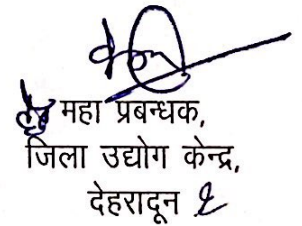 महा प्रबन्धक,
जिला उद्योग केन्द्र,
देहरादून